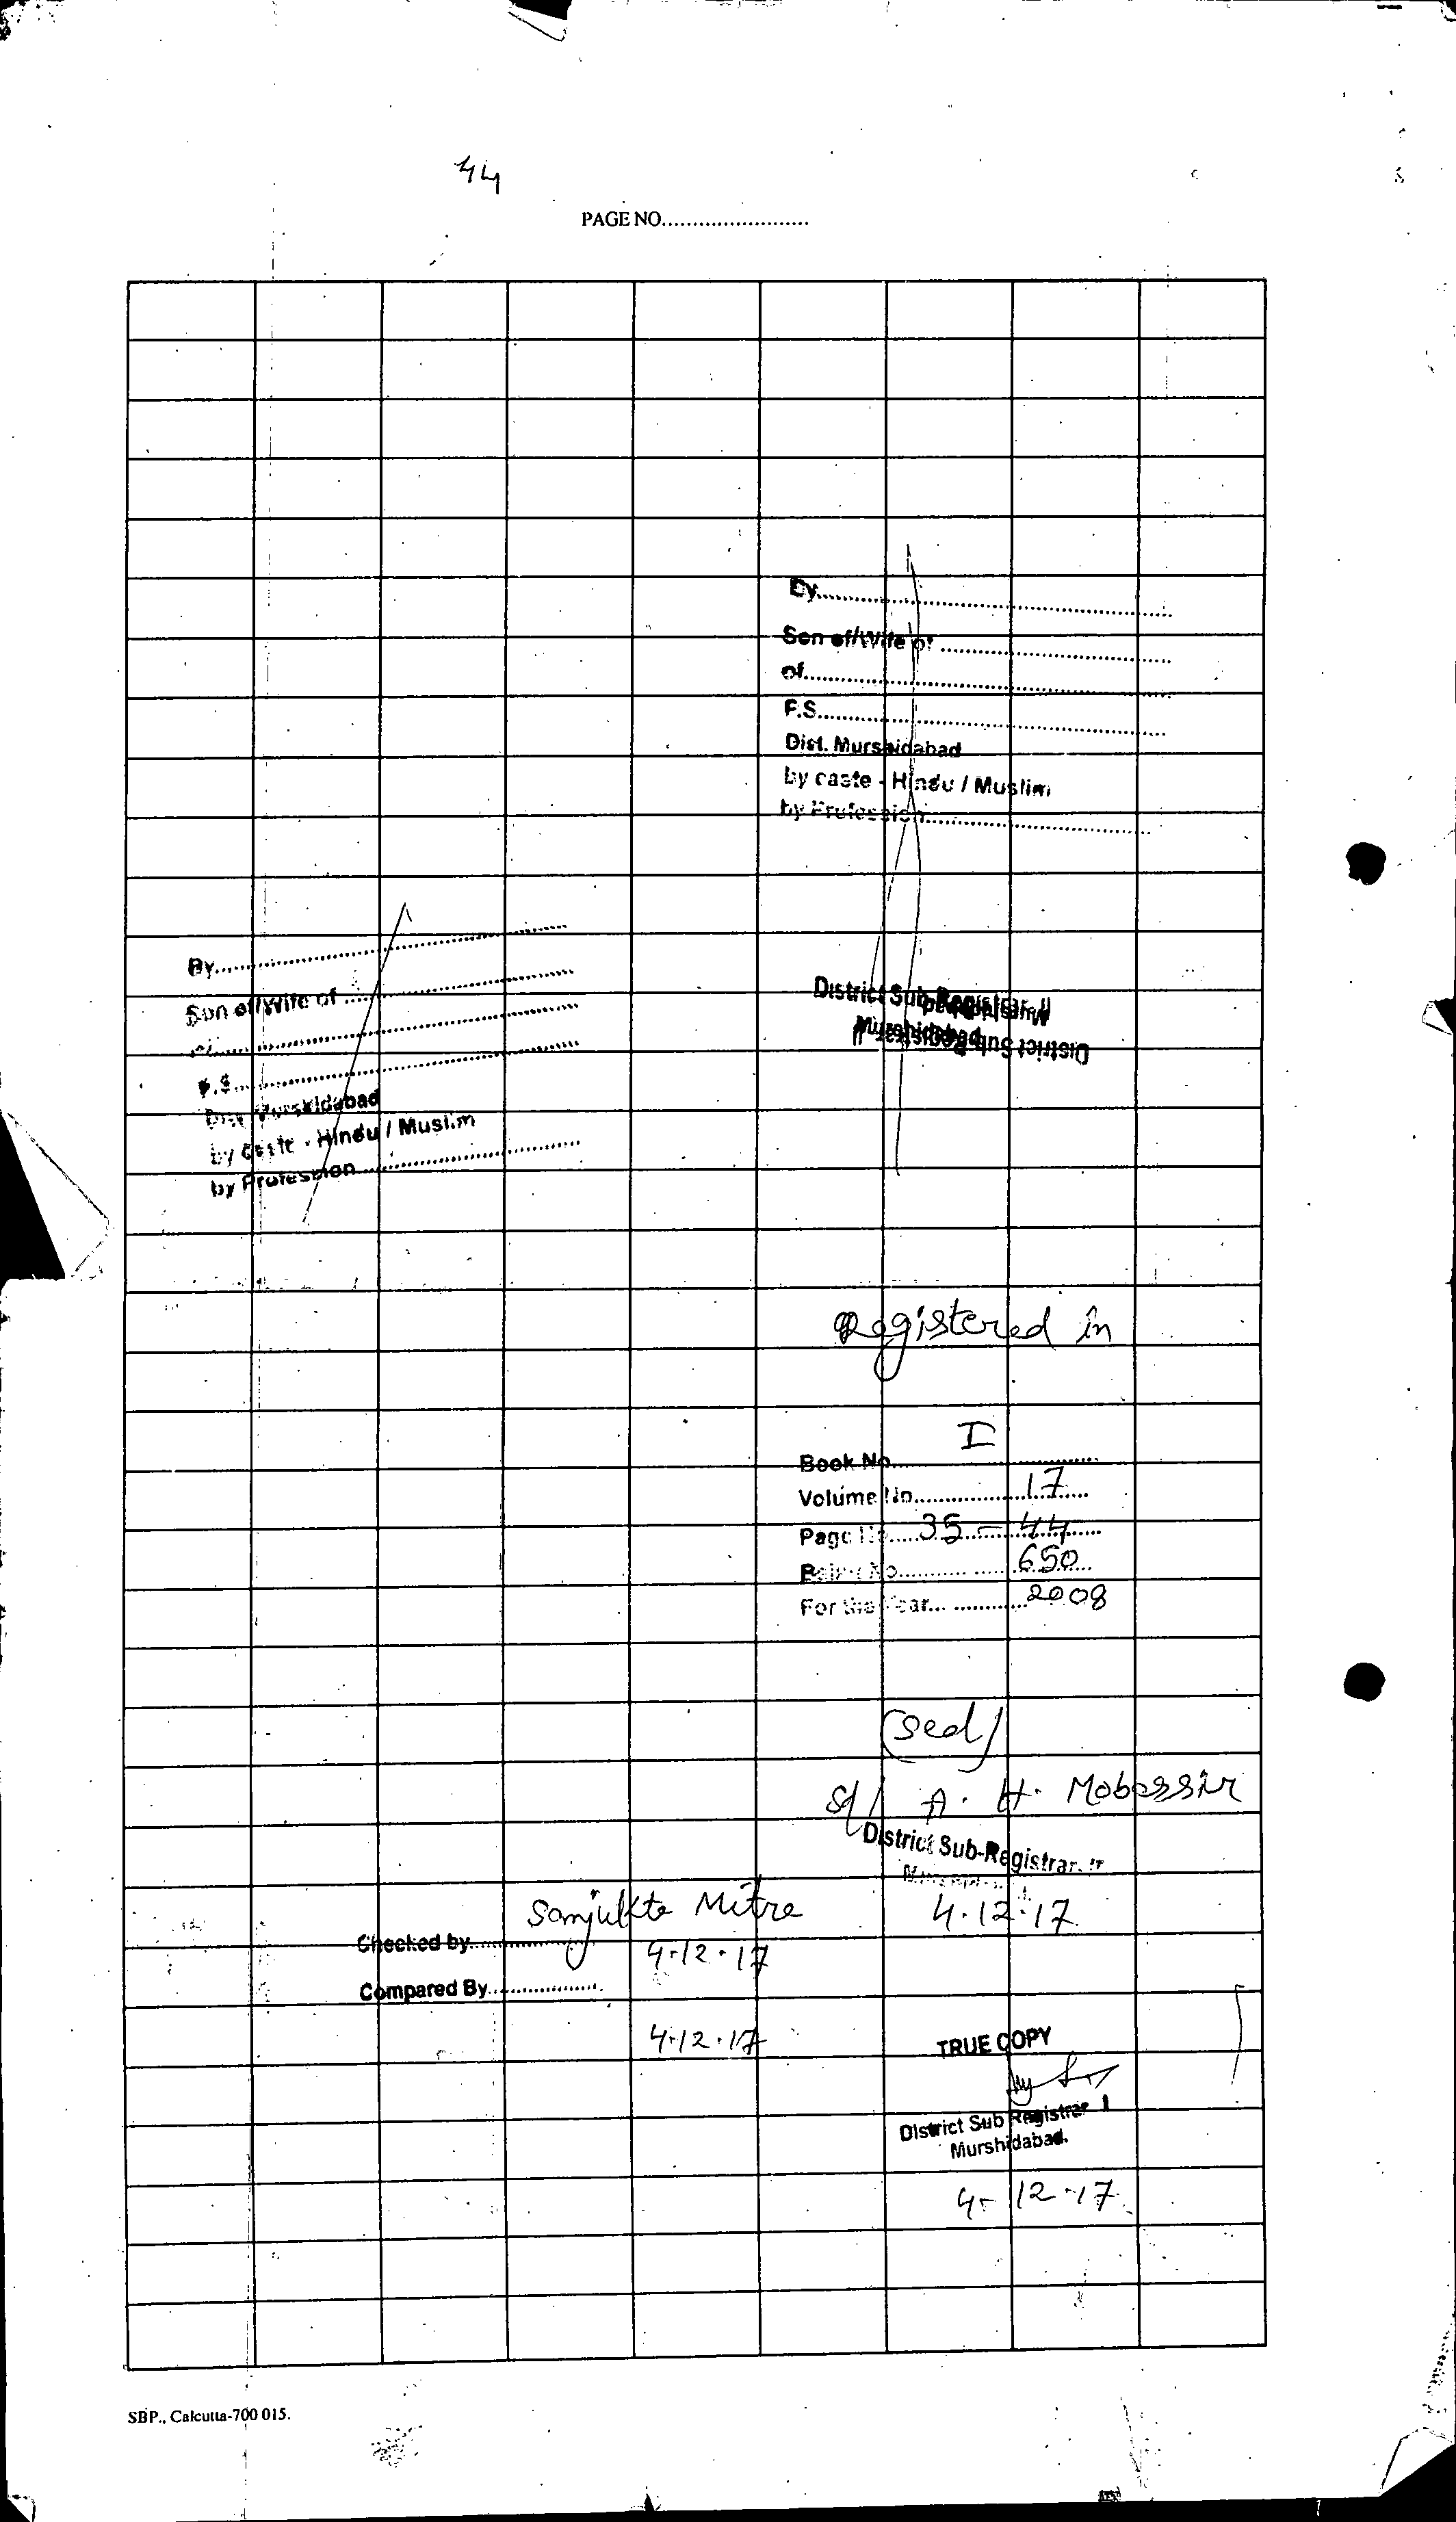 44
PAGE NO.........................
By..............................
Son of/Wife of ..............................
of..............................
P.S..............................
Dist. Murshidabad
by caste - Hindu / Muslim
by Profession..............................
By..............................
Son of/Wife of ..............................
of..............................
P.S..............................
Dist. Murshidabad
by Caste - Hindu / Muslim
by Profession..............................
District Sub-Registrar-II
Murshidabad
District Sub-Registrar-II
Murshidabad
Registered in
Book No.......... I ..........
Volume No.......... 17 .....
Page No..... 35 - 44 .....
Being No.......... 650 ...
For the Year... .......... 2008
(Seal)
Sd/ A. H. Mobassir
District Sub-Registrar-II
4.12.17
Checked by......... Sanjukta Mitra
4.12.17
Compared By..................
4.12.17
TRUE COPY
District Sub Registrar
Murshidabad.
4-12-17
SBP., Calcutta-700 015.